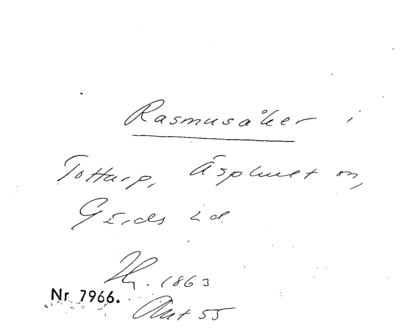 Rasmusåker i
Tottarp, Äsphult sn,
Gärds hd
Hr. 1863
Nr 7966.
Ant 55